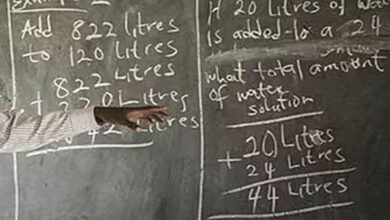 Example
Add 822 Litres
to 120 Litres
822 Litres
+ 120 Litres
942 Litres
If 20 Litres of Wa
is added to a 24
what total amount
of water
solution
20 Litres
+ 24 Litres
44 Litres